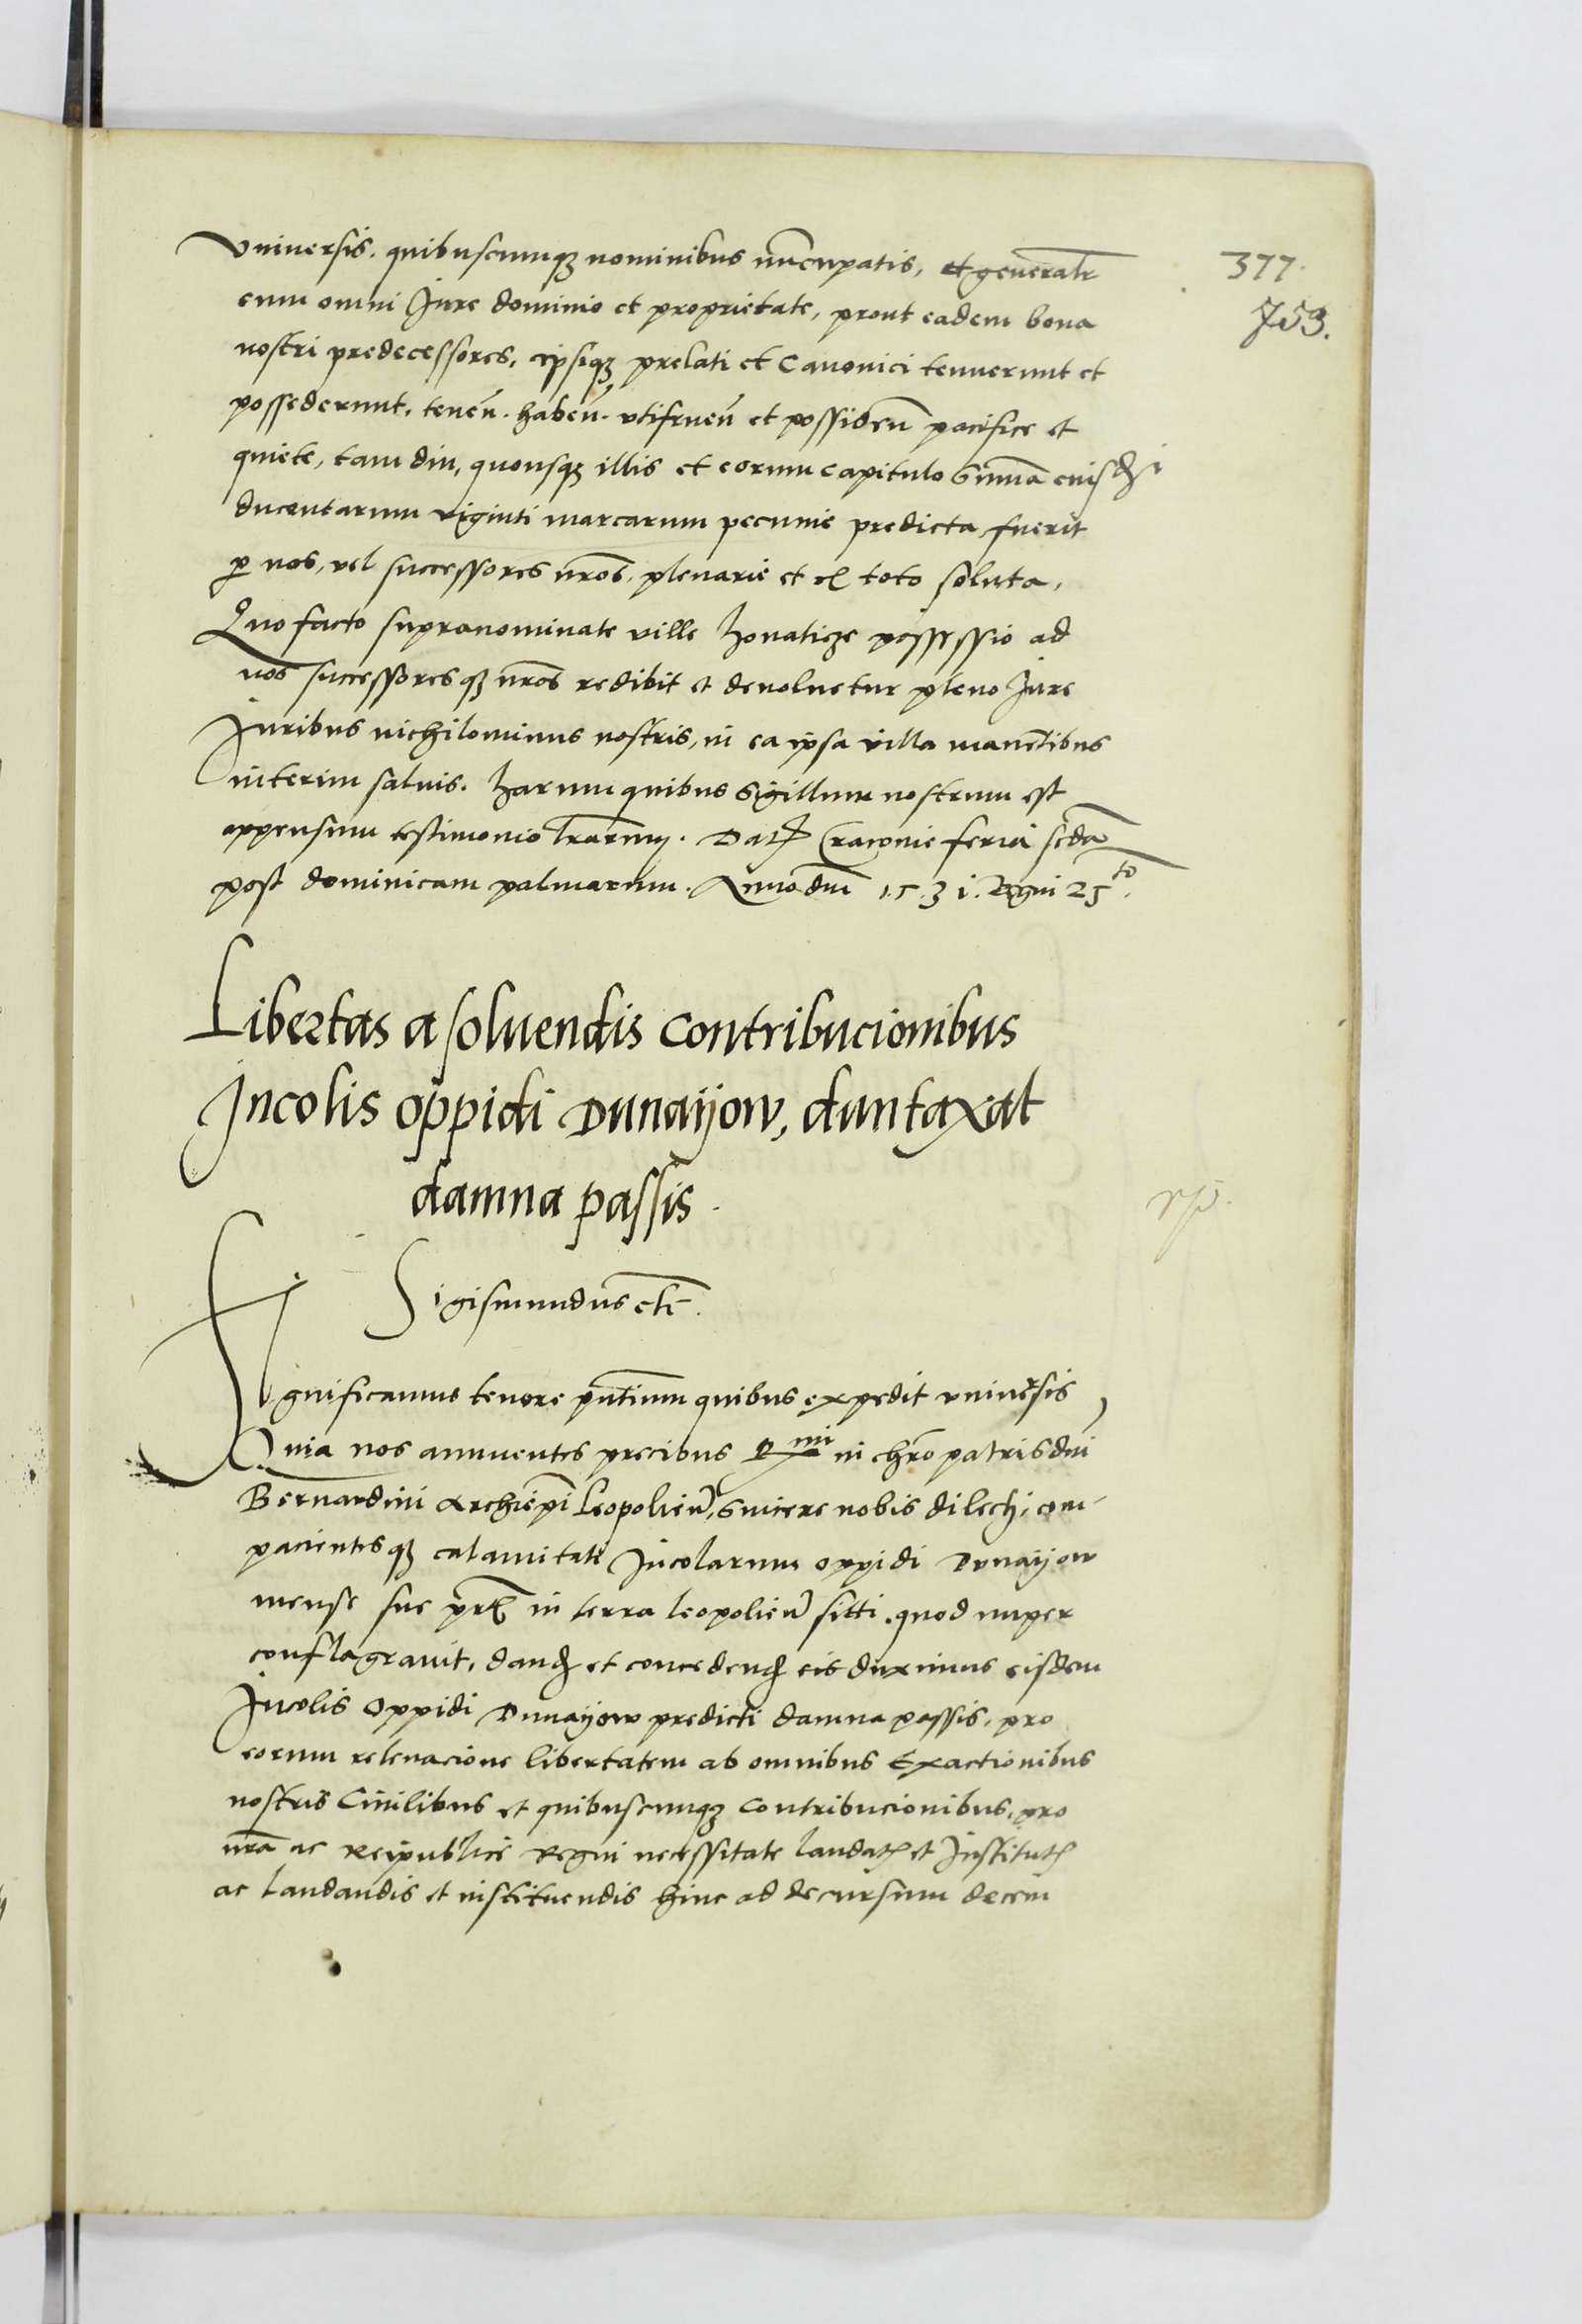 377.
753.
Vniuersis. quibuscumqꝫ nominibus nu̅cupatis, et generalr̅
cum omni Jure dominio et proprietate, prout eadem bona
nostri predecessores, ipsiqꝫ prelati et Canonici tenuerunt et
possederunt, tenen̅. haben̅. vtifruen̅ et possiden̅ pacifice et
quiete, tam diu, quousqꝫ illis et eorum capitulo Summa̅
ducentarum viginti marcarum pecunie predicta fuerit
ꝑ nos, vel successores nr̅os, plenarie et ex toto soluta,
Quo facto supranominate ville possessio ad
nos successoresqꝫ nr̅os redibit et deuoluetur pleno Jure
Juribus nichilominus nostris, in ea ipsa villa manen̅tibus
interim saluis. harum quibus Sigillum nostrum est
appensum testimonio lr̅arum. Datꝭ Cracouie feria sc̅da
post dominicam palmarum. Anno dn̅i 1.5.3 i. Regni 25to.
Libertas a soluendis contribucionibus
Incolis oppidi Dunaijow, duntaxat
damna passis.
Sigismundus etc̅.
Significamus tenore pn̅tium quibus expedit vniuersis,
Quia nos annuentes precibus Rmi in chr̅o patris dn̅i
Bernardini Archiep̅i Leopolien̅, Sincere nobis dilecti, com-
pacientesqꝫ calamitati Incolarum oppidi Dunaijow
mense sue in terra leopolien̅ sitti. quod nuper
conflagrauit, dandꝭ et concedendꝭ eis duximus eisdem
Incolis Oppidi Dunaijow predicti damna passis, pro
eorum releuacione libertatem ab omnibus Exactionibus
nostris Ciuilibus et quibuscunqꝫ contribucionibus, pro
nr̅a ac Reipublice Regni necessitate laudatꝭ et Institutꝭ
ac laudandis et instituendis hinc ad decursum decem